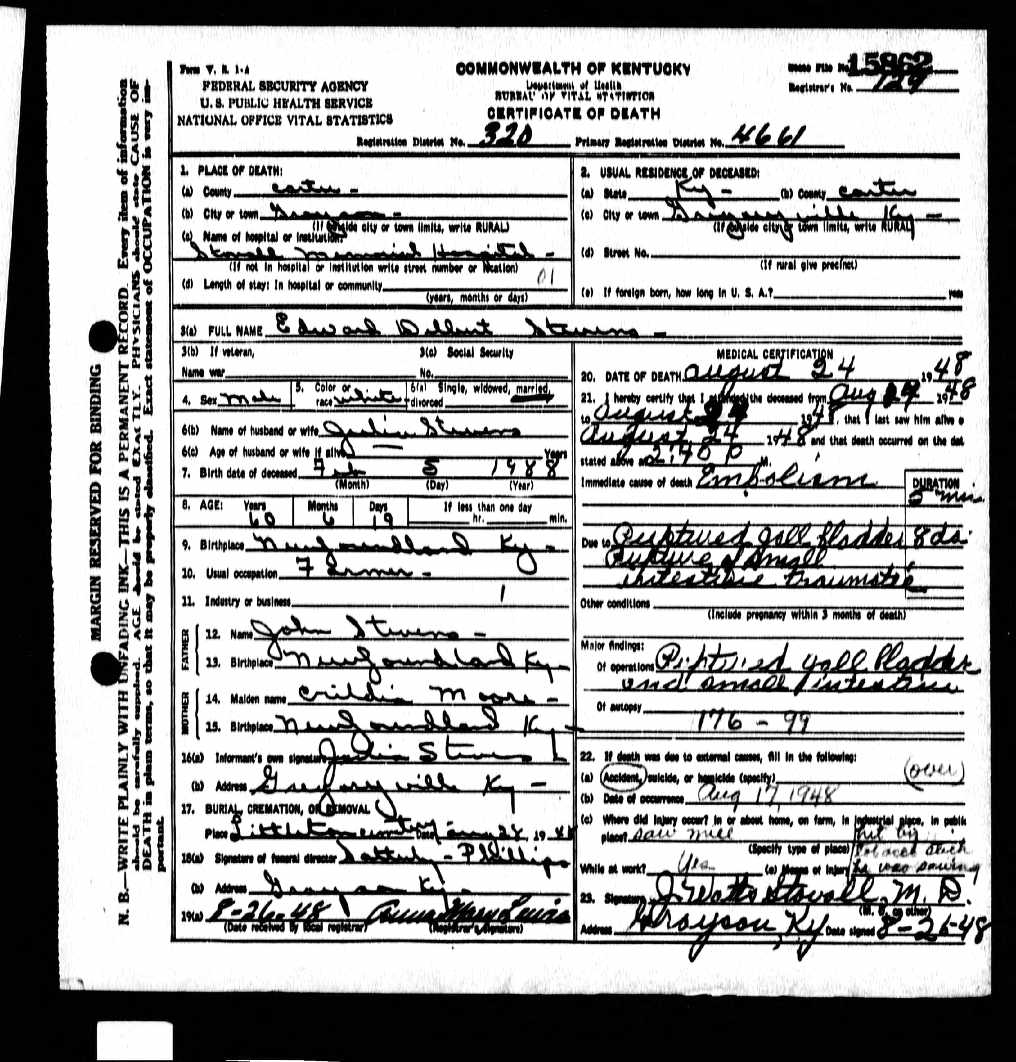 Form V. S. 1-A
FEDERAL SECURITY AGENCY
U. S. PUBLIC HEALTH SERVICE
NATIONAL OFFICE VITAL STATISTICS
COMMONWEALTH OF KENTUCKY
Department of Health
BUREAU OF VITAL STATISTICS
CERTIFICATE OF DEATH
State File No. 15862
Registrar's No. 129
Registration District No. 320 Primary Registration District No. 4661
MARGIN RESERVED FOR BINDING
N. B.—WRITE PLAINLY WITH UNFADING INK—THIS IS A PERMANENT RECORD. Every item of information
should be carefully supplied. AGE should be stated EXACTLY. PHYSICIANS should state CAUSE OF
DEATH in plain terms, so that it may be properly classified. Exact statement of OCCUPATION is very im-
portant.
1. PLACE OF DEATH:
(a) County Carter -
(b) City or town Grayson -
(If outside city or town limits, write RURAL)
(c) Name of hospital or institution:
Stovall Memorial Hospital -
(If not in hospital or institution write street number or location)
(d) Length of stay: In hospital or community 01
(years, months or days)
2. USUAL RESIDENCE OF DECEASED:
(a) State Ky - (b) County Carter
(c) City or town Gregoryville Ky -
(If outside city or town limits, write RURAL)
(d) Street No.
(If rural give precinct)
(e) If foreign born, how long in U. S. A.? years
3(a) FULL NAME Edward Delbert Stevens -
3(b) If veteran,
Name war
3(c) Social Security
No.
4. Sex Male
5. Color or
race White
6(a) Single, widowed, married,
divorced
6(b) Name of husband or wife Julia Stevens
6(c) Age of husband or wife if alive Years
7. Birth date of deceased Feb 5 1988
(Month) (Day) (Year)
8. AGE: Years Months Days If less than one day
60 6 19 hr. min.
9. Birthplace Newfoundland Ky -
10. Usual occupation Farmer -
11. Industry or business 1
FATHER
12. Name John Stevens -
13. Birthplace Newfoundland Ky -
MOTHER
14. Maiden name Moore -
15. Birthplace Newfoundland Ky -
16(a) Informant's own signature Julia Stevens
(b) Address Gregoryville Ky -
17. BURIAL, CREMATION, OR REMOVAL
Place Littleton cemetery Date 1948
18(a) Signature of funeral director - Phillips
(b) Address Grayson Ky -
19(a) 8-26-48 Anna Mary Lewis
(Date received by local registrar) (Registrar's Signature)
MEDICAL CERTIFICATION
20. DATE OF DEATH August 24 1948
21. I hereby certify that I attended the deceased from Aug 1948
to August 1948, that I last saw him alive on
August 24 1948 and that death occurred on the date
stated above at 2:40 P M.
Immediate cause of death Embolism
DURATION
5 min
Due to Ruptured gall bladder 8 da.
Rupture of small
intestine traumatic
Other conditions
(Include pregnancy within 3 months of death)
Major findings:
Of operations Ruptured gall bladder
and small intestine
Of autopsy
176 - 99
22. If death was due to external causes, fill in the following:
(a) Accident, suicide, or homicide (specify) (over)
(b) Date of occurrence Aug 17, 1948
(c) Where did injury occur? In or about home, on farm, in industrial place, in public
place? saw mill
(Specify type of place)
While at work? Yes (e) Means of injury
hit by
tobacco stick
he was sawing
23. Signature J. Watts Stovall, M. D.
(M. D. or other)
Address Grayson, Ky Date signed 8-26-48